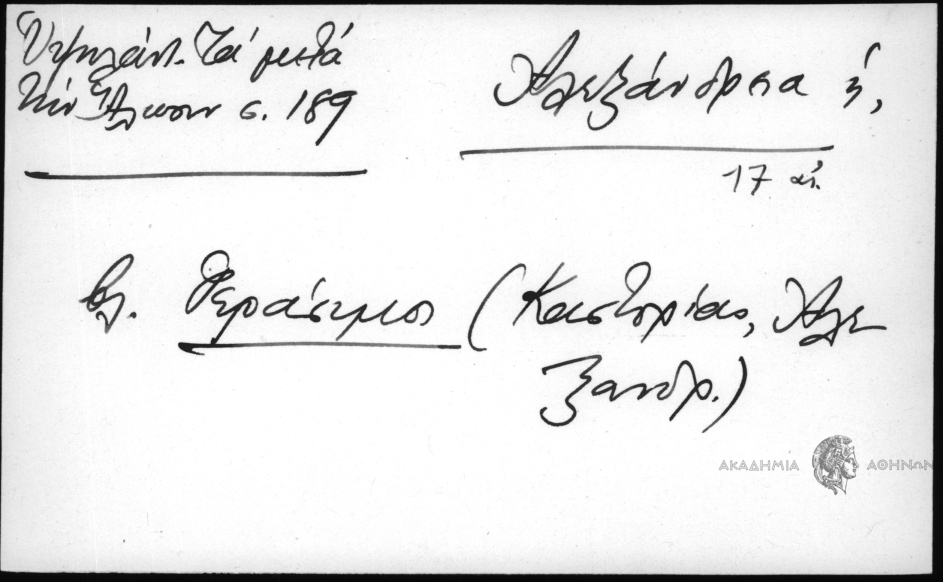 Ὑψηλάντ. Τά μετά
τήν Ἅλωσιν σ. 189
Ἀλεξάνδρεια ἡ,
17 αἰ.
βλ. Γεράσιμος (Καστορίας, Ἀλε
ξανδρ.)
ΑΚΑΔΗΜΙΑ ΑΘΗΝΩΝ